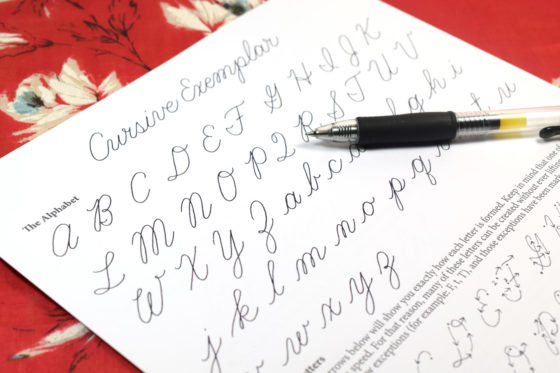 Cursive Exemplar
The Alphabet
A B C D E F G H I J K
L M N O P Q R S T U V
W X Y Z a b c g h i
j k l m n o p q t u
w x y z
below will show you exactly how each letter is formed. Keep in mind that one
speed. For that reason, many of these letters can be created without ever lifting
exceptions (for example: F, t, T), and those exceptions have been